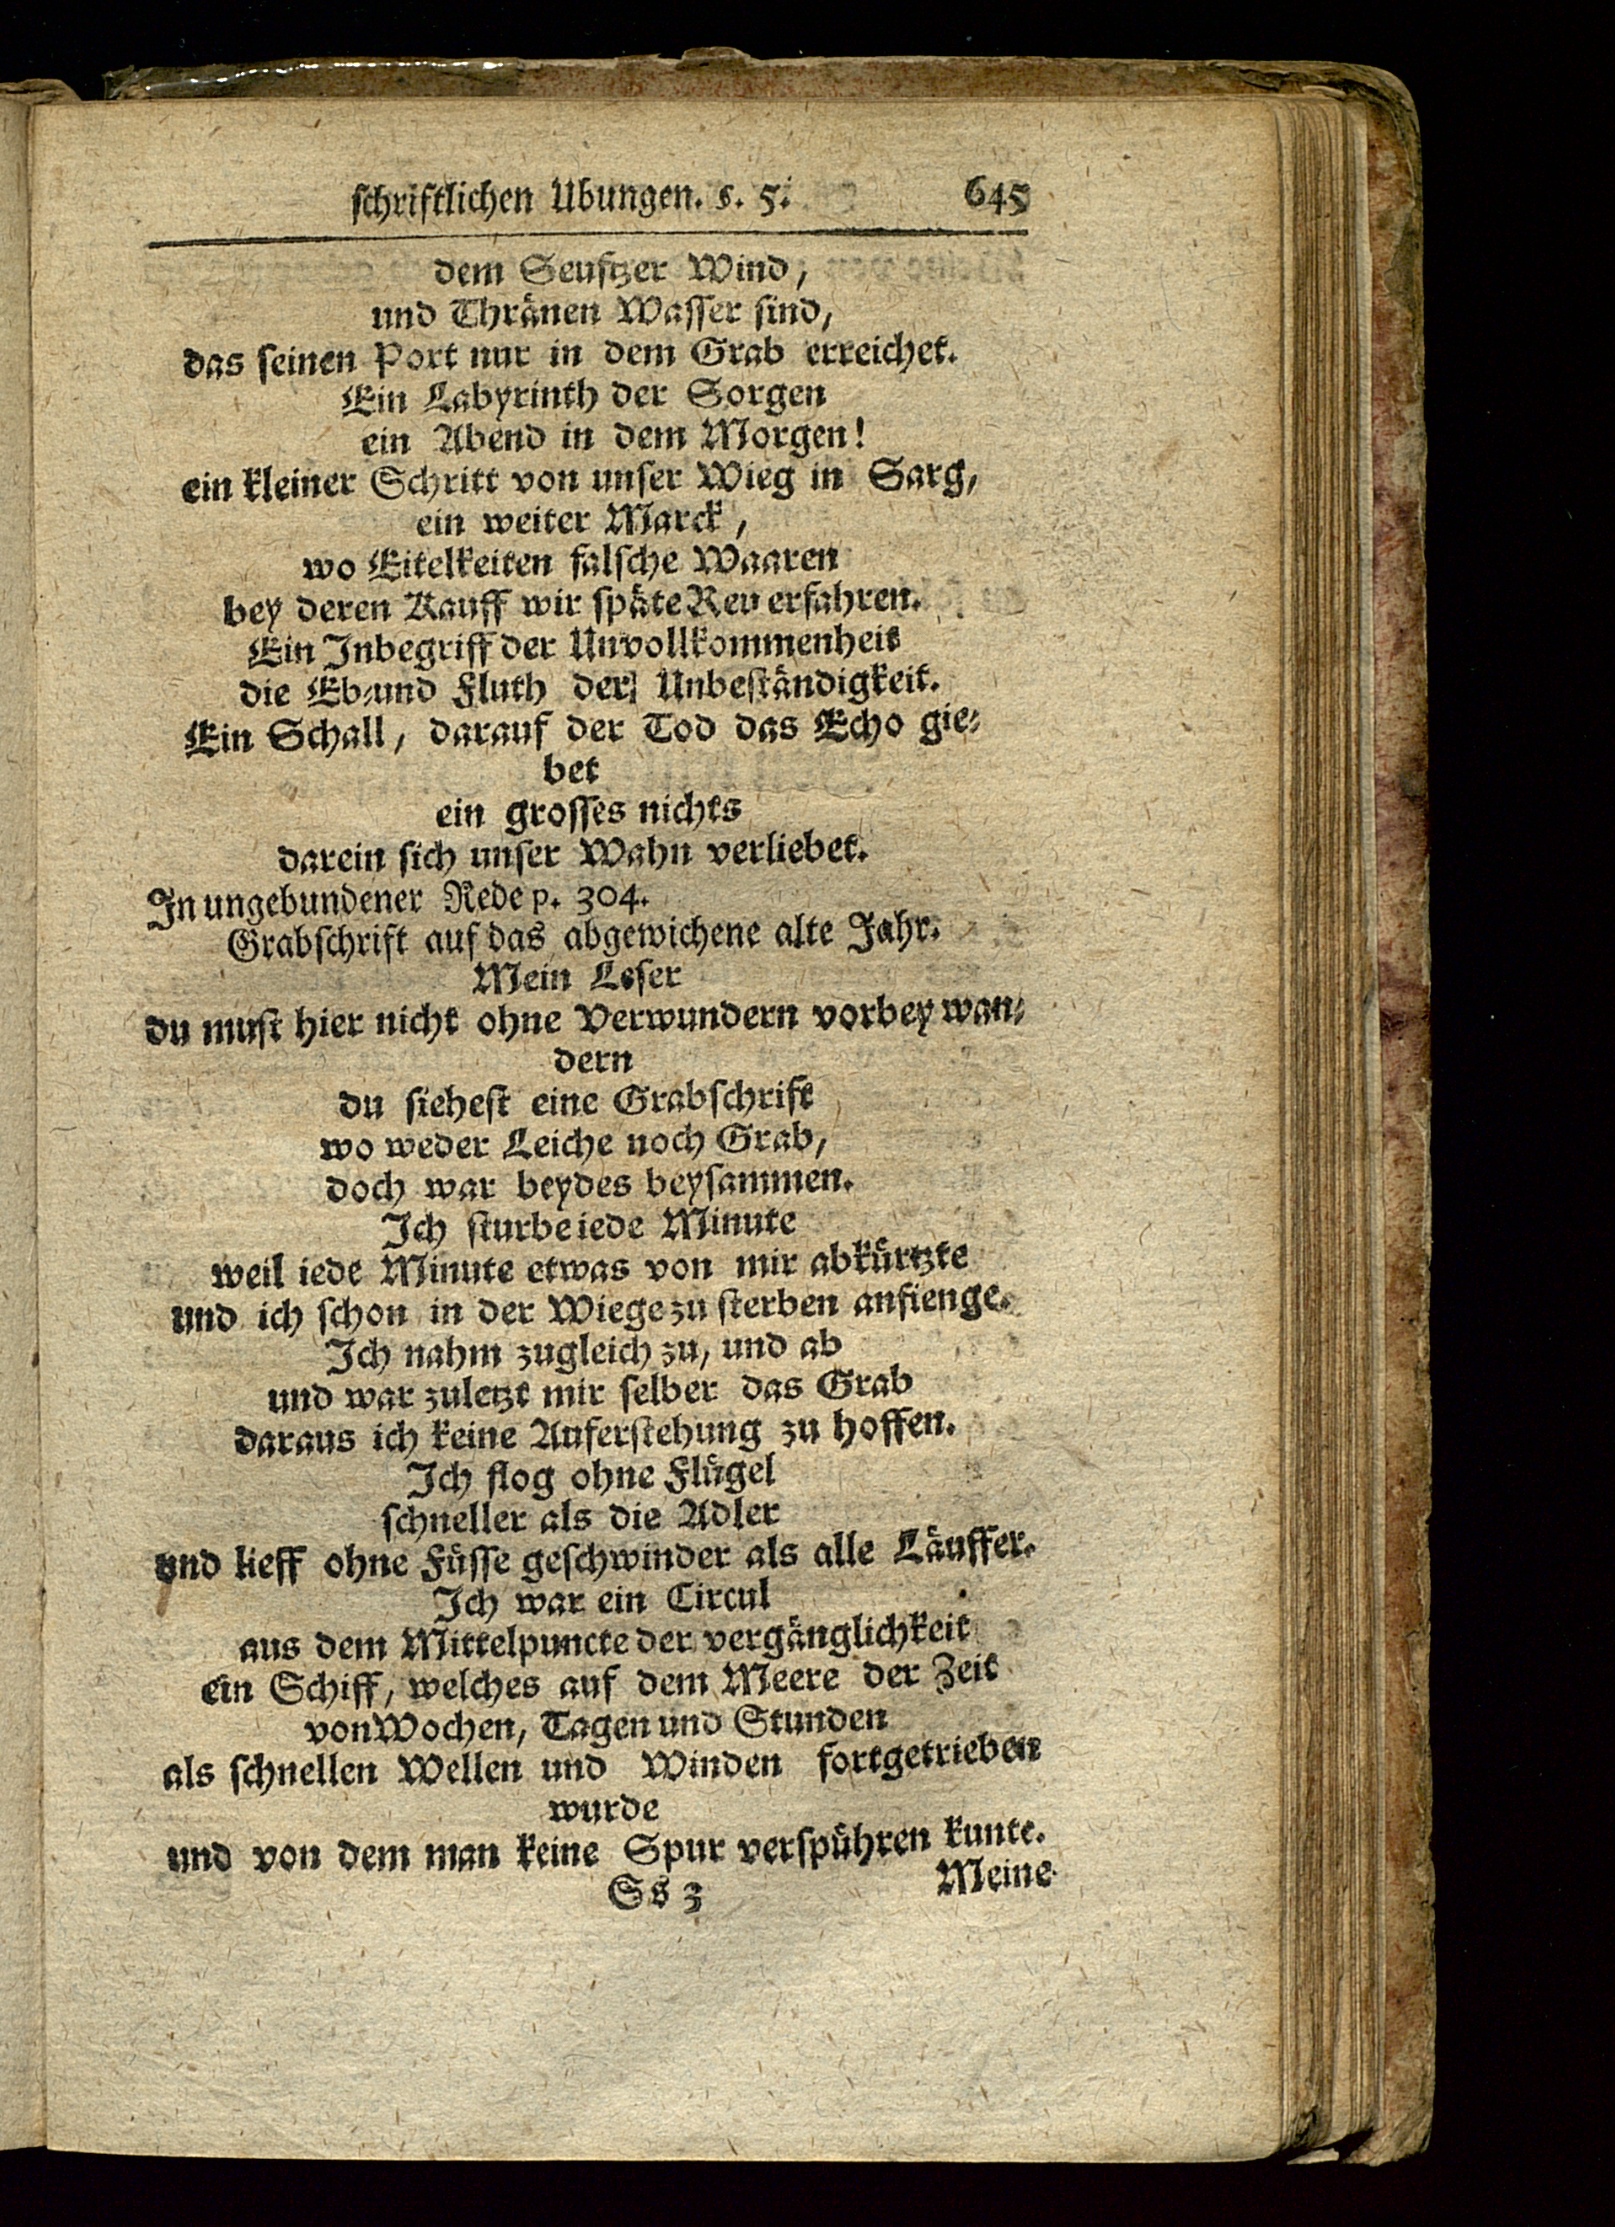 schriftlichen Ubungen. s. 5. 645
dem Seuftzer Wind,
und Thränen Wasser sind,
das seinen Port nur in dem Grab erreichet.
Ein Labyrinth der Sorgen
ein Abend in dem Morgen!
ein kleiner Schritt von unser Wieg in Sarg,
ein weiter Marck,
wo Eitelkeiten falsche Waaren
bey deren Kauff wir späte Reu erfahren.
Ein Inbegriff der Unvollkommenheit
die Eb-und Fluth der] Unbeständigkeit.
Ein Schall, darauf der Tod das Echo gie-
bet
ein grosses nichts
darein sich unser Wahn verliebet.
In ungebundener Rede p. 304.
Grabschrift auf das abgewichene alte Jahr.
Mein Leser
du must hier nicht ohne Verwundern vorbey wan-
dern
du siehest eine Grabschrift
wo weder Leiche noch Grab,
doch war beydes beysammen.
Ich sturbe iede Minute
weil iede Minute etwas von mir abkürtzte
und ich schon in der Wiege zu sterben anfienge.
Ich nahm zugleich zu, und ab
und war zuletzt mir selber das Grab
daraus ich keine Auferstehung zu hoffen.
Ich flog ohne Flügel
schneller als die Adler
und lieff ohne Füsse geschwinder als alle Läuffer.
Ich war ein Circul
aus dem Mittelpuncte der vergänglichkeit
ein Schiff, welches auf dem Meere der Zeit
von Wochen, Tagen und Stunden
als schnellen Wellen und Winden fortgetrieben
wurde
und von dem man keine Spur verspühren kunte.
Ss 3 Meine